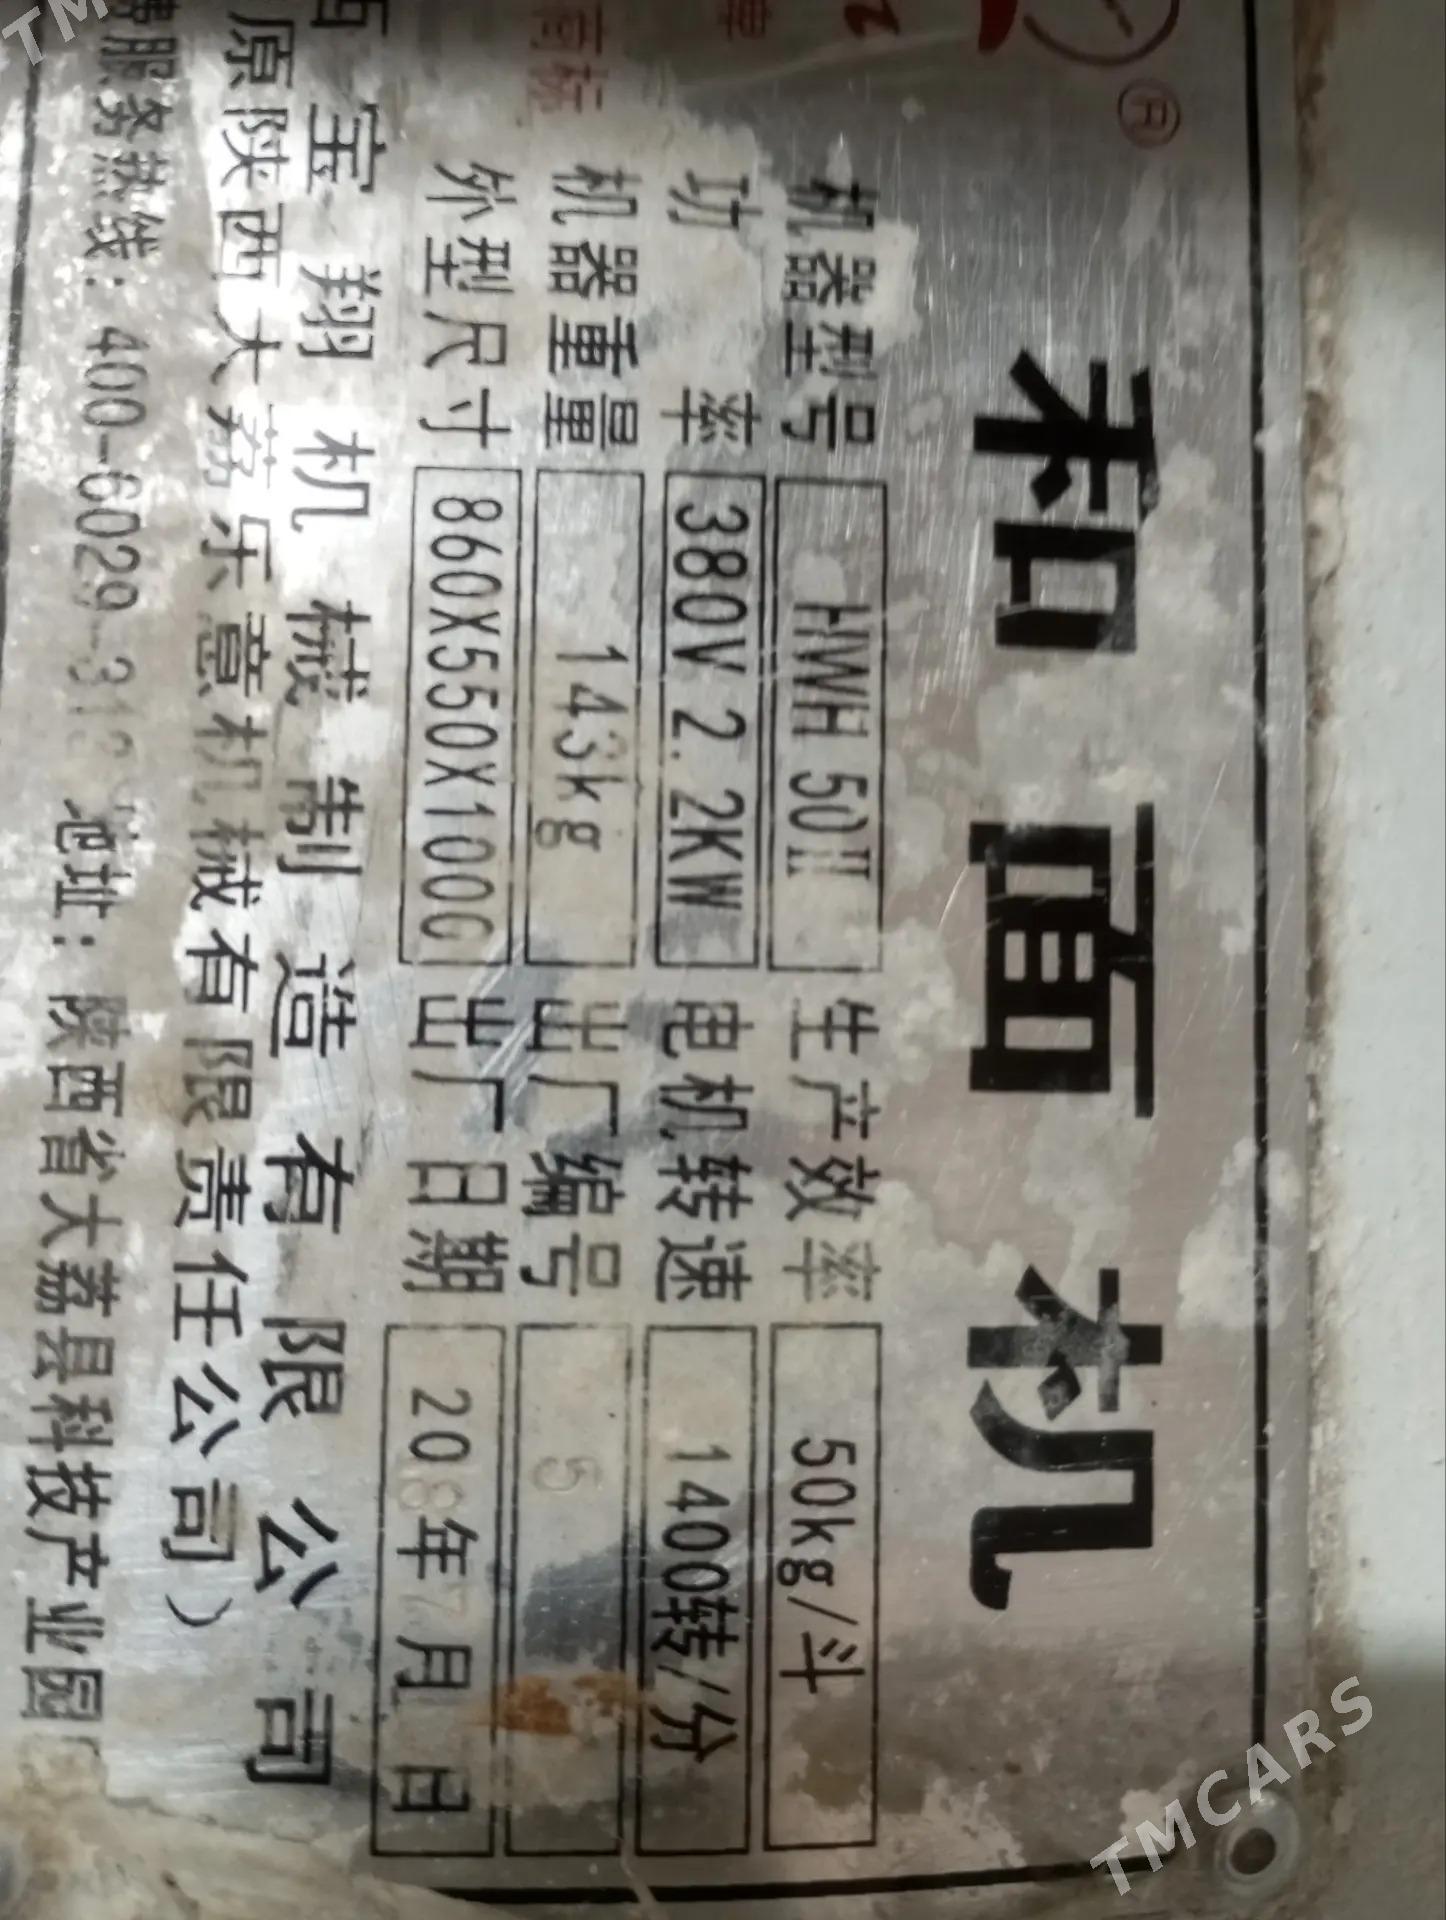 商标
®
和面机
机器型号 HWH 50II 生产效率 50kg/斗
功率 380V 2.2KW 电机转速 1400转/分
机器重量 143kg 出厂编号 5
外型尺寸 860X550X1000 出厂日期 2018年7月 日
宝翔机械制造有限公司
原陕西大荔乐意机械有限责任公司)
服务热线: 400-6029-31 地址: 陕西省大荔县科技产业园
TMCARS